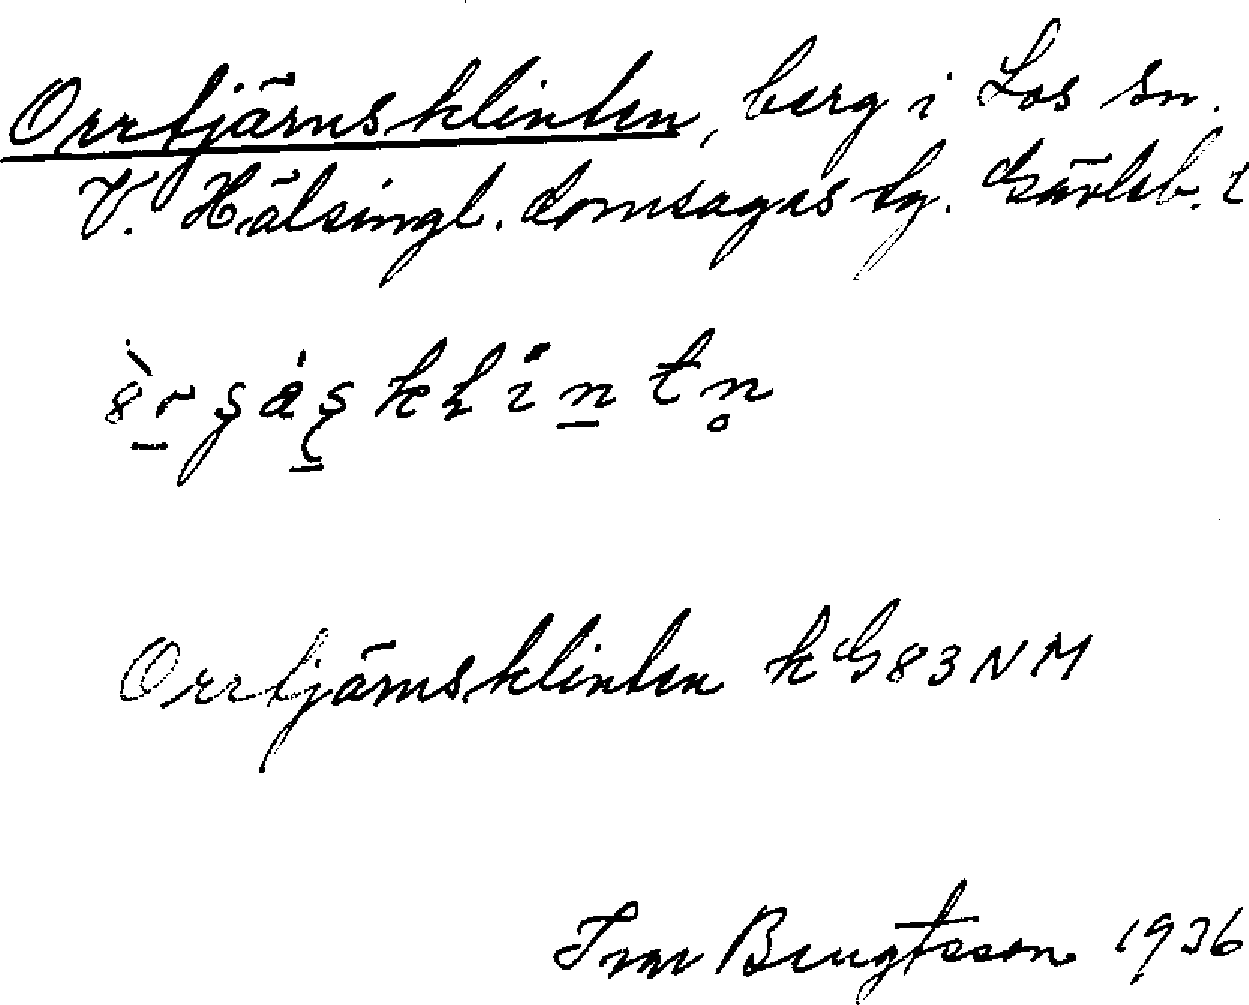 Orrtjärnsklinten, berg i Los sn.
V. Hälsingl. domsagas tg. Gävleb. l
Orrtjärnsklinten kG83NM
Ivar Bengtsson 1936